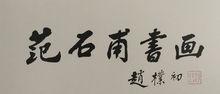 范石甫書画
趙樸初